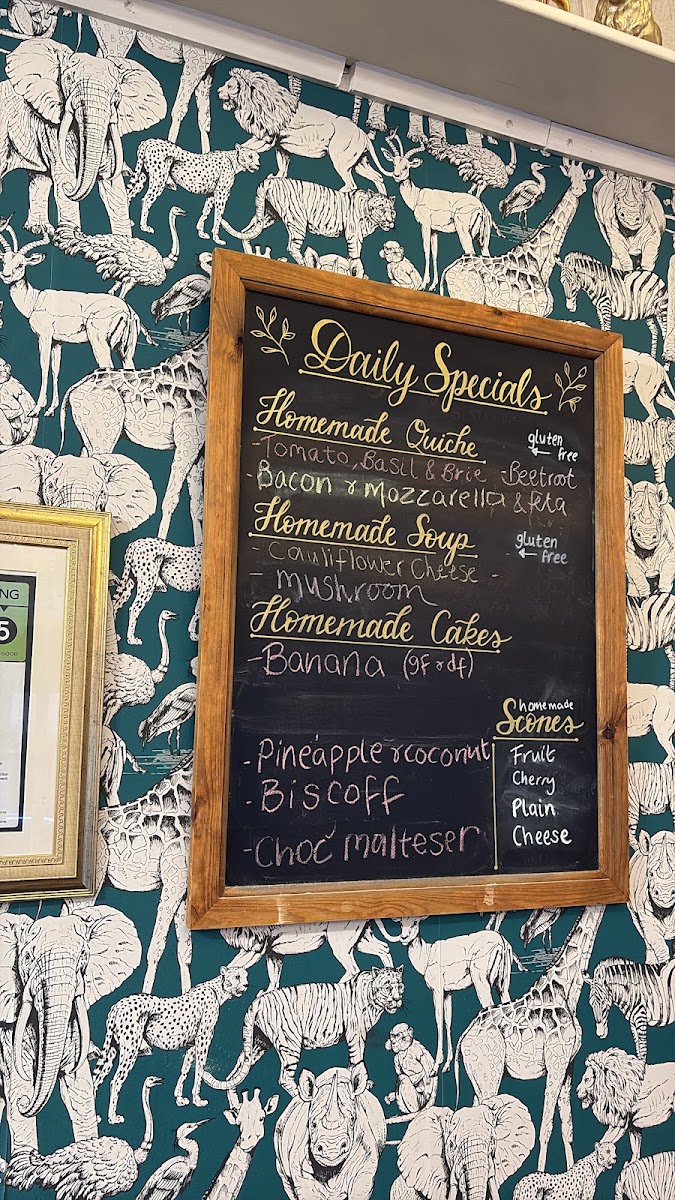 Daily Specials
Homemade Quiche
gluten free
- Tomato, Basil & Brie - Beetroot
- Bacon & Mozzarella & feta
Homemade Soup
gluten free
- Cauliflower Cheese -
- mushroom
Homemade Cakes
- Banana (gf & df)
- Pineapple & coconut
- Biscoff
- Choc malteser
homemade
Scones
Fruit
Cherry
Plain
Cheese
NG
5
GOOD